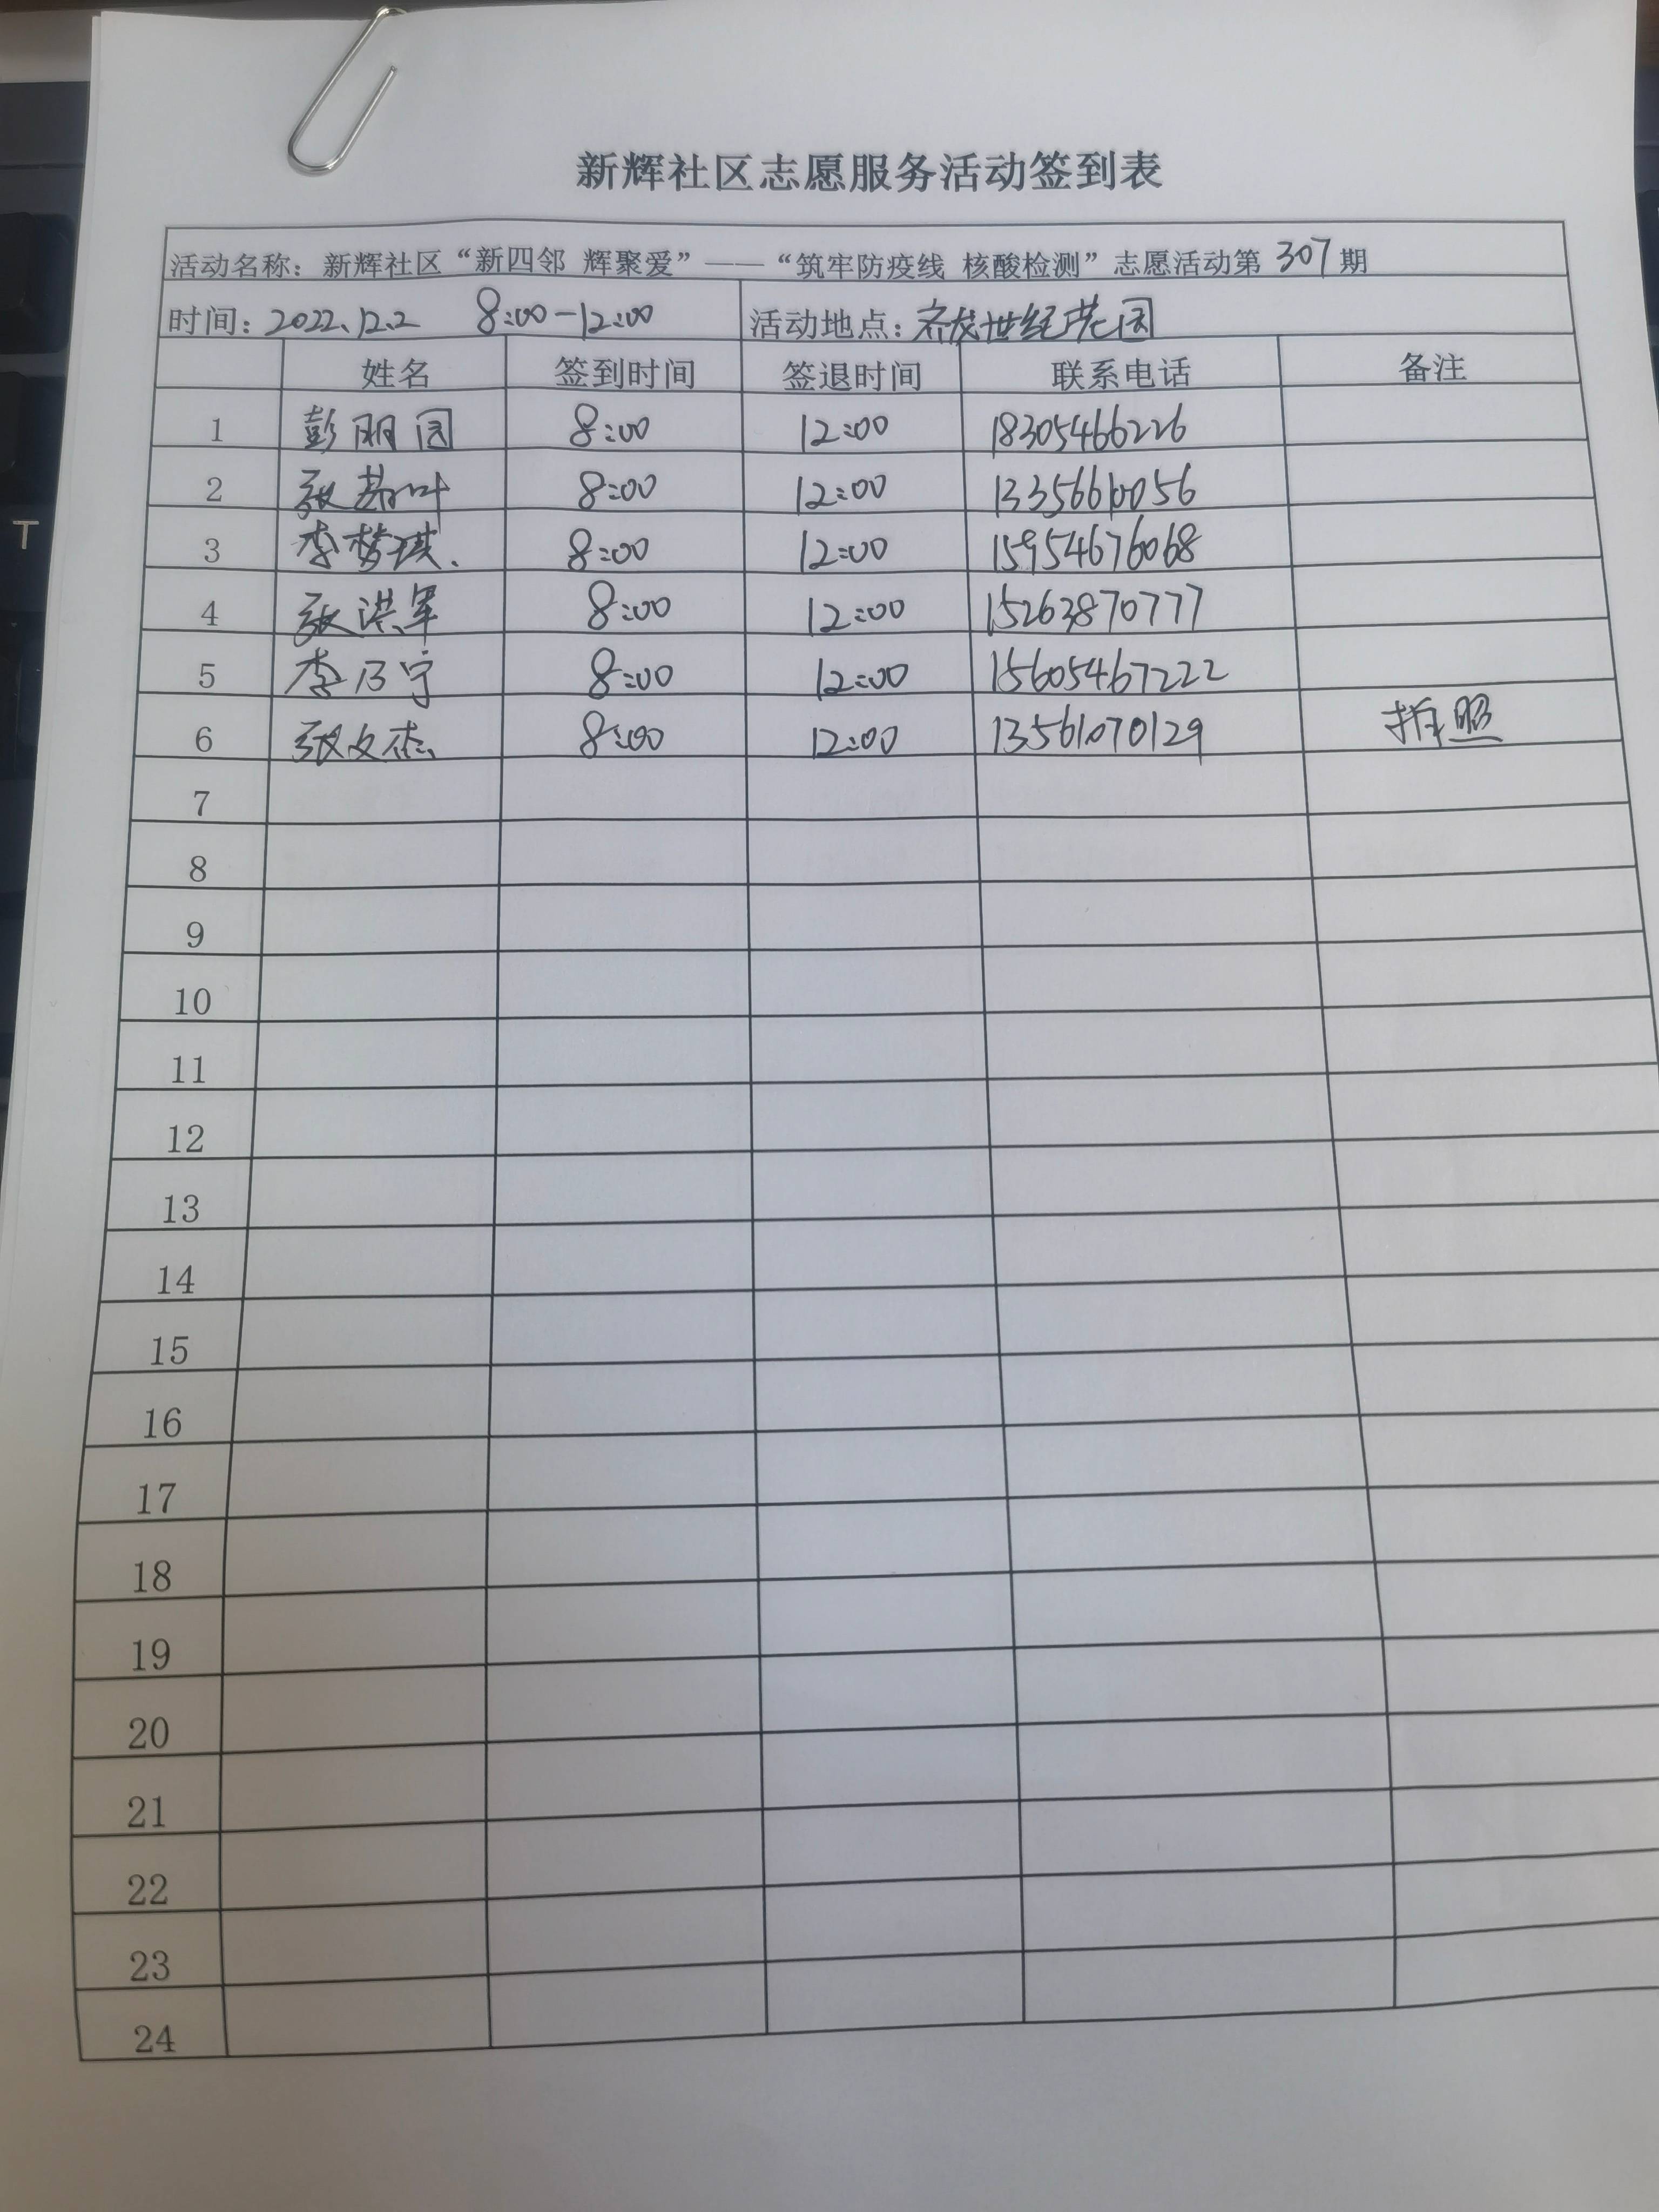 新辉社区志愿服务活动签到表
活动名称：新辉社区“新四邻 辉聚爱”——“筑牢防疫线 核酸检测”志愿活动第 307 期
时间：2022.12.2 8:00-12:00 活动地点：世纪花园
姓名 签到时间 签退时间 联系电话 备注
1 彭丽园 8:00 12:00 18305466226
2 张 叶 8:00 12:00 13356610056
3 李梦琪. 8:00 12:00 15954676068
4 张洪军 8:00 12:00 15263870777
5 李乃宁 8:00 12:00 15605467222
6 张文杰 8:00 12:00 13561070129 拍照
7
8
9
10
11
12
13
14
15
16
17
18
19
20
21
22
23
24
T